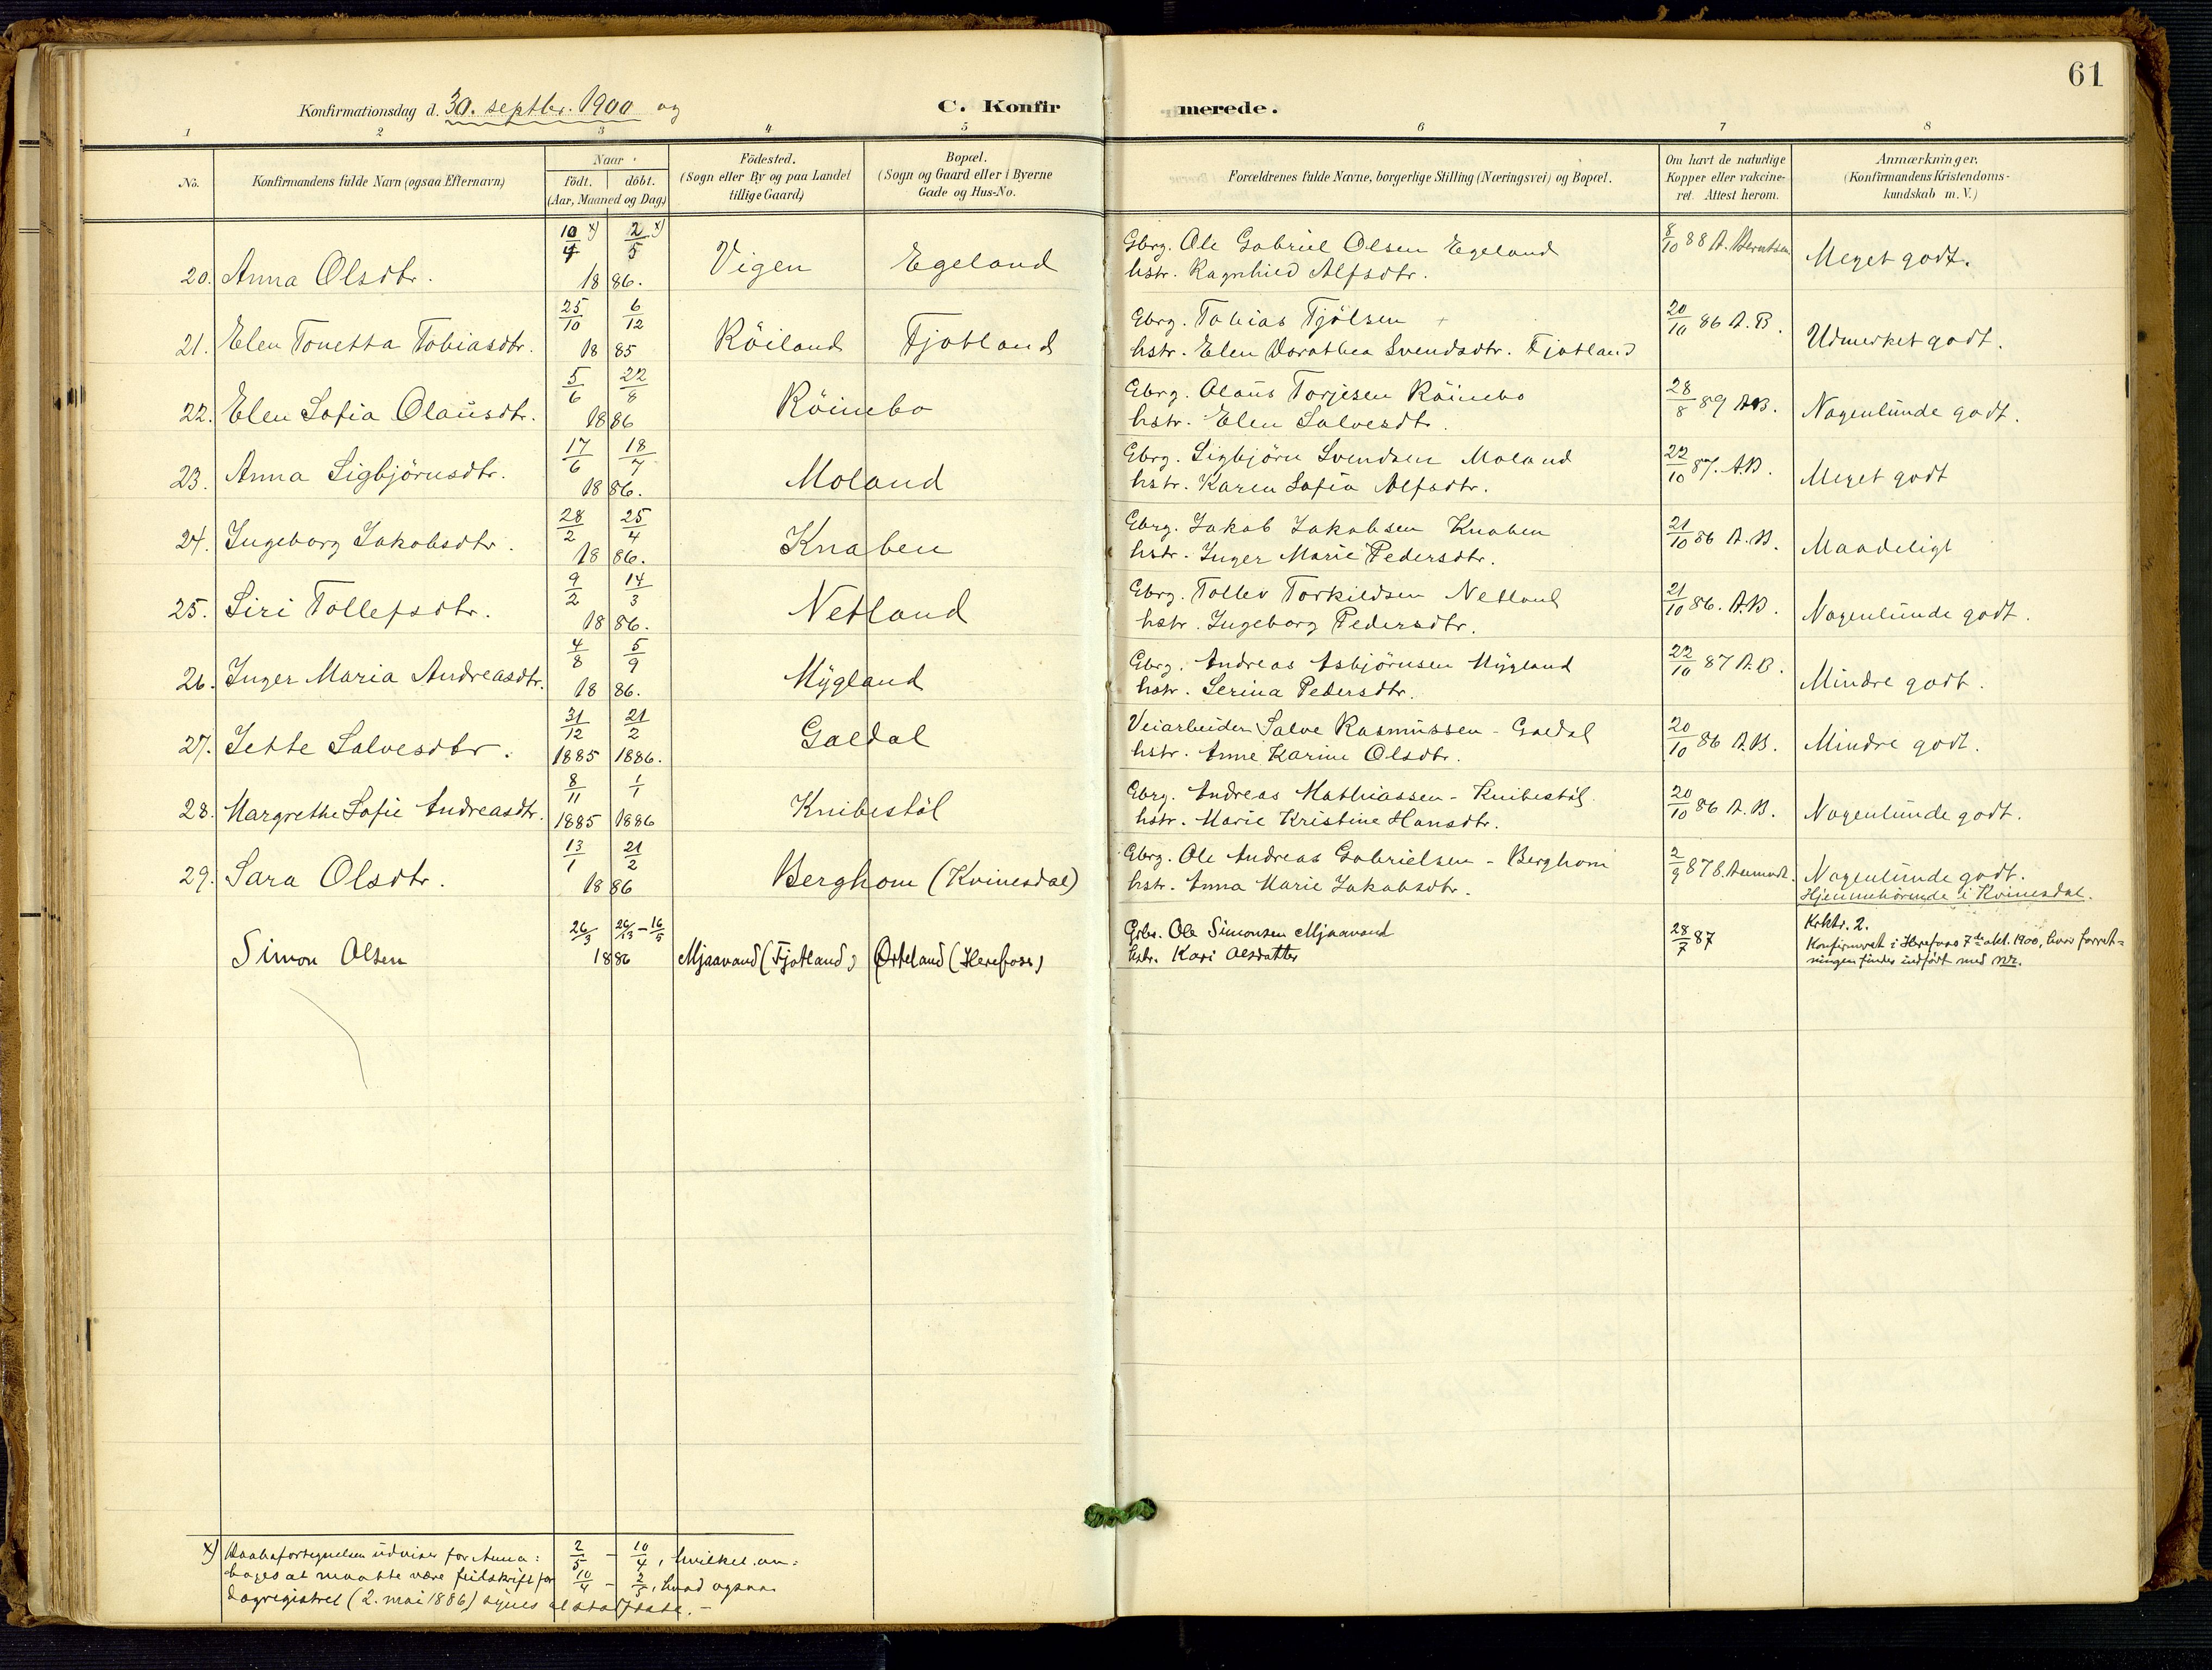 61
Konfirmationsdag d. 30. septbr. 1900 og
C. Konfirmerede.
1 2 3 4 5 6 7 8
No.
Konfirmandens fulde Navn (ogsaa Efternavn)
Naar
födt. döbt.
(Aar, Maaned og Dag)
Födested.
(Sogn eller By og paa Landet
tillige Gaard)
Bopæl.
(Sogn og Gaard eller i Byerne
Gade og Hus-No.
Forældrenes fulde Navne, borgerlige Stilling (Næringsvei) og Bopæl.
Om havt de naturlige
Kopper eller vakcine-
ret. Attest herom.
Anmærkninger.
(Konfirmandens Kristendoms-
kundskab m. V.)
20. Anna Olsdtr. 10/4 x) 2/5 x) 1886. Vigen Egeland
Gbrg. Ole Gabriel Olsen Egeland
hstr. Ragnhild Alfsdtr.
8/10 88 A. Berntsen Meget godt.
21. Elen Tonetta Tobiasdtr. 25/10 6/12 1885 Röiland Fjotland
Gbrg. Tobias Tjölsen
hstr. Elen Dorothea Svendsdtr. Fjotland
20/10 86 A. B. Udmerket godt.
22. Elen Sofia Olausdtr. 5/6 22/8 1886 Röinebo
Gbrg. Olaus Torjesen Röinebo
hstr. Elen Salvesdtr.
28/8 89 AB. Nogenlunde godt.
23. Anna Sigbjörnsdtr. 17/6 18/7 1886. Moland
Gbrg. Sigbjörn Svendsen Moland
hstr. Karen Sofia Alfsdtr.
22/10 87. AB. Meget godt
24. Ingeborg Jakobsdtr. 28/2 25/4 1886. Knaben
Gbrg. Jakob Jakobsen Knaben
hstr. Inger Marie Pedersdtr.
21/10 86 A. B. Maadeligt
25. Siri Tollefsdtr. 9/2 14/3 1886. Netland
Gbrg. Tollev Torkildsen Netland
hstr. Ingeborg Pedersdtr.
21/10 86. A.B. Nogenlunde godt.
26. Inger Maria Andreasdtr. 4/8 5/9 1886. Mygland
Gbrg. Andreas Asbjörnsen Mygland
hstr. Serina Pedersdtr.
22/10 87 A. B. Mindre godt.
27. Jette Salvesdtr. 31/12 1885 21/2 1886. Gaedal
Veiarbeider Salve Rasmussen - Gaedal
hstr. Anne Karine Olsdtr.
20/10 86 A.B. Mindre godt.
28. Margrethe Sofie Andreasdtr. 8/11 1885 1/1 1886 Knibestöl
Gbrg. Andreas Mathiassen - Knibestöl
hstr. Marie Kristine Hansdtr.
20/10 86 A. B. Nogenlunde godt.
29. Sara Olsdtr. 13/1 21/2 1886 Berghom (Kvinesdal)
Gbrg. Ole Andreas Gabrielsen - Berghom
hstr. Anna Marie Jakobsdtr.
2/9 87 Nogenlunde godt.
Hjemmehörende i Kvinesdal.
Simon Olsen 26/3 1886 Mjaavand (Fjotland) Örteland (Herefoss)
Gbr. Ole Simonsen Mjaavand
hstr. Kari Olsdatter
28/7 87 Krktr. 2.
Konfirmeret i Herefoss 7de okt. 1900, hvor forret-
ningen findes indfört med nr.
x) Daabsfortegnelsen udviser for Anna: 2/5 - 10/4, hvilket an-
tages at maatte være feilskrift for 10/4 - 2/5, hvad ogsaa
dagregistret (2. mai 1886) synes at stadfæste. -